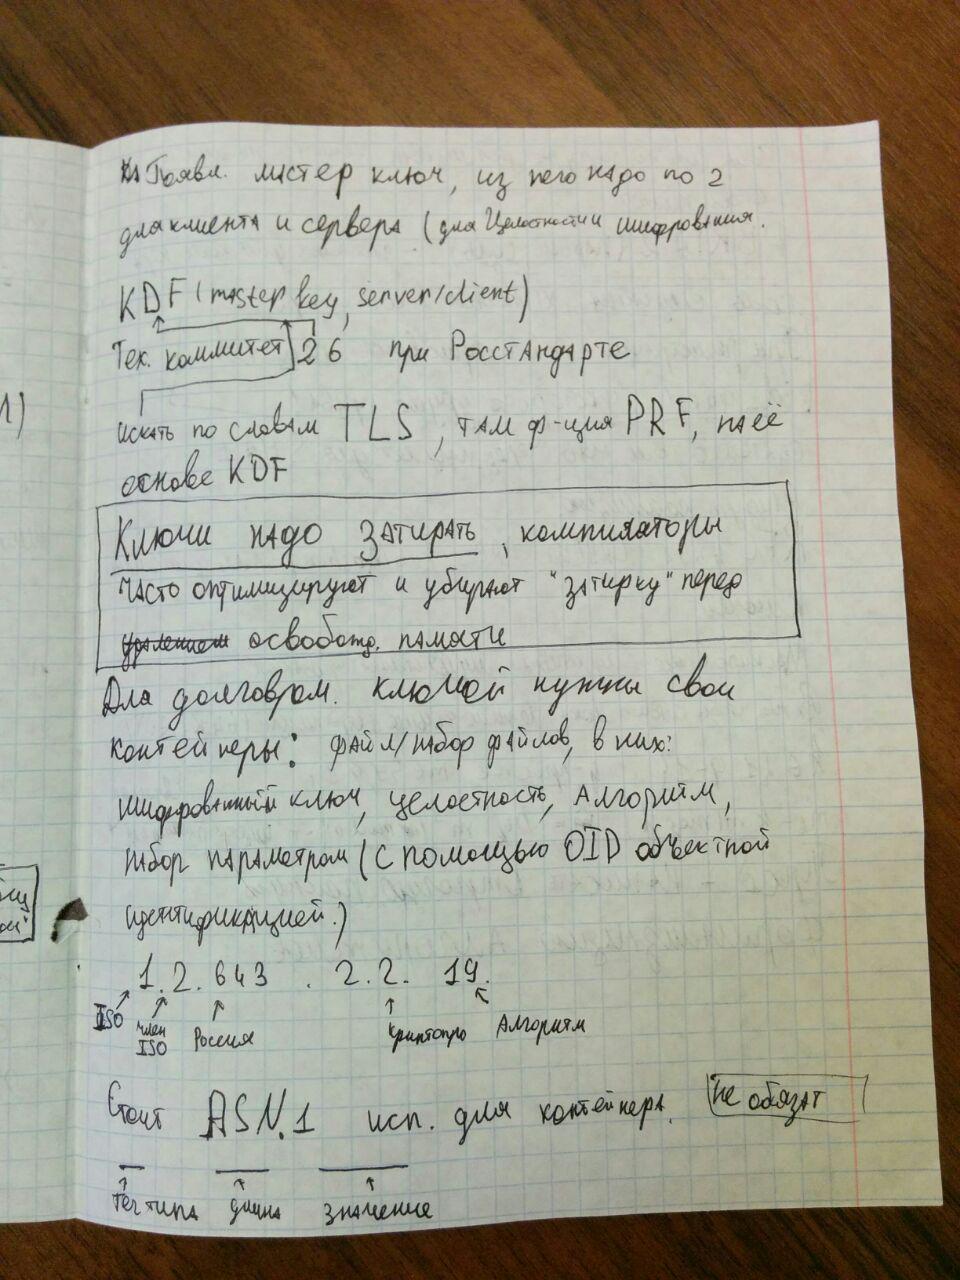 Появл. мастер ключ, из него надо по 2
для клиента и сервера (для целостности и шифрования.
KDF (master key, server/client)
Тех. коммитет 26 при Росстандарте
искать по словам TLS, там ф-ция PRF, на её
основе KDF
Ключи надо затирать, компиляторы
часто оптимизируют и убирают "затирку" перед
удалением освобожд. памяти
Для долговрем. ключей нужны свои
контейнеры: файл/набор файлов, в них:
шифрованный ключ, целостность, алгоритм,
набор параметром (с помощью OID объектной
идентификацией.)
1.2.643 . 2.2. 19.
ISO член ISO Россия Криптопро Алгоритм
Стоит ASN.1 исп. для контейнера. не обязат
тег типа длина значение